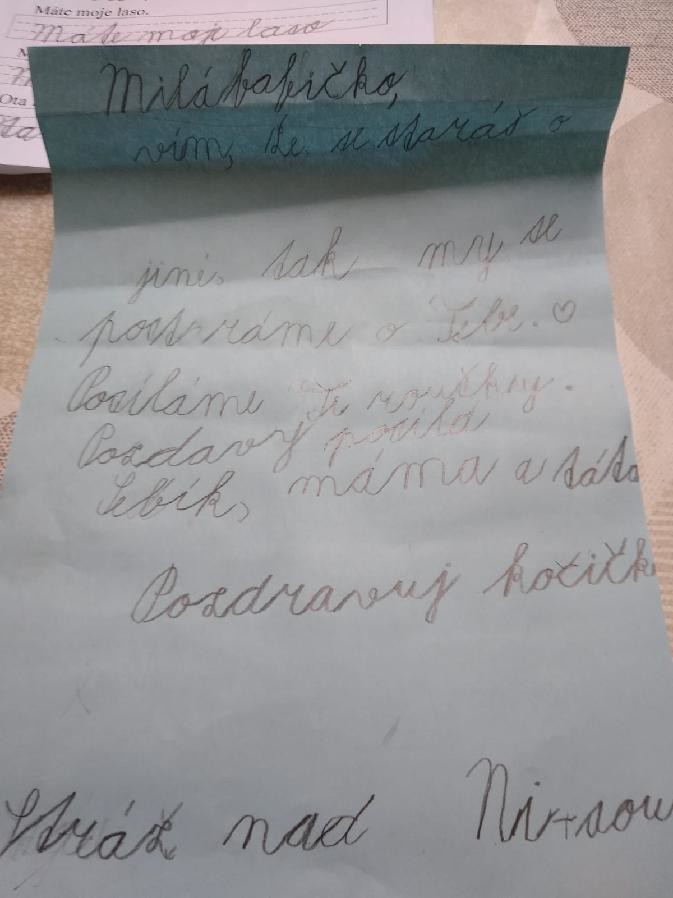 Máte moje laso.
Máte moje laso
Ota
Milá babičko,
vím, že se staráš o
jiné, tak my se
postaráme o Tebe. ♡
Posíláme Ti roušky.
Pozdavy posílá
Sebík, máma a táta
Pozdravuj kočičk
Stráž nad Nisou